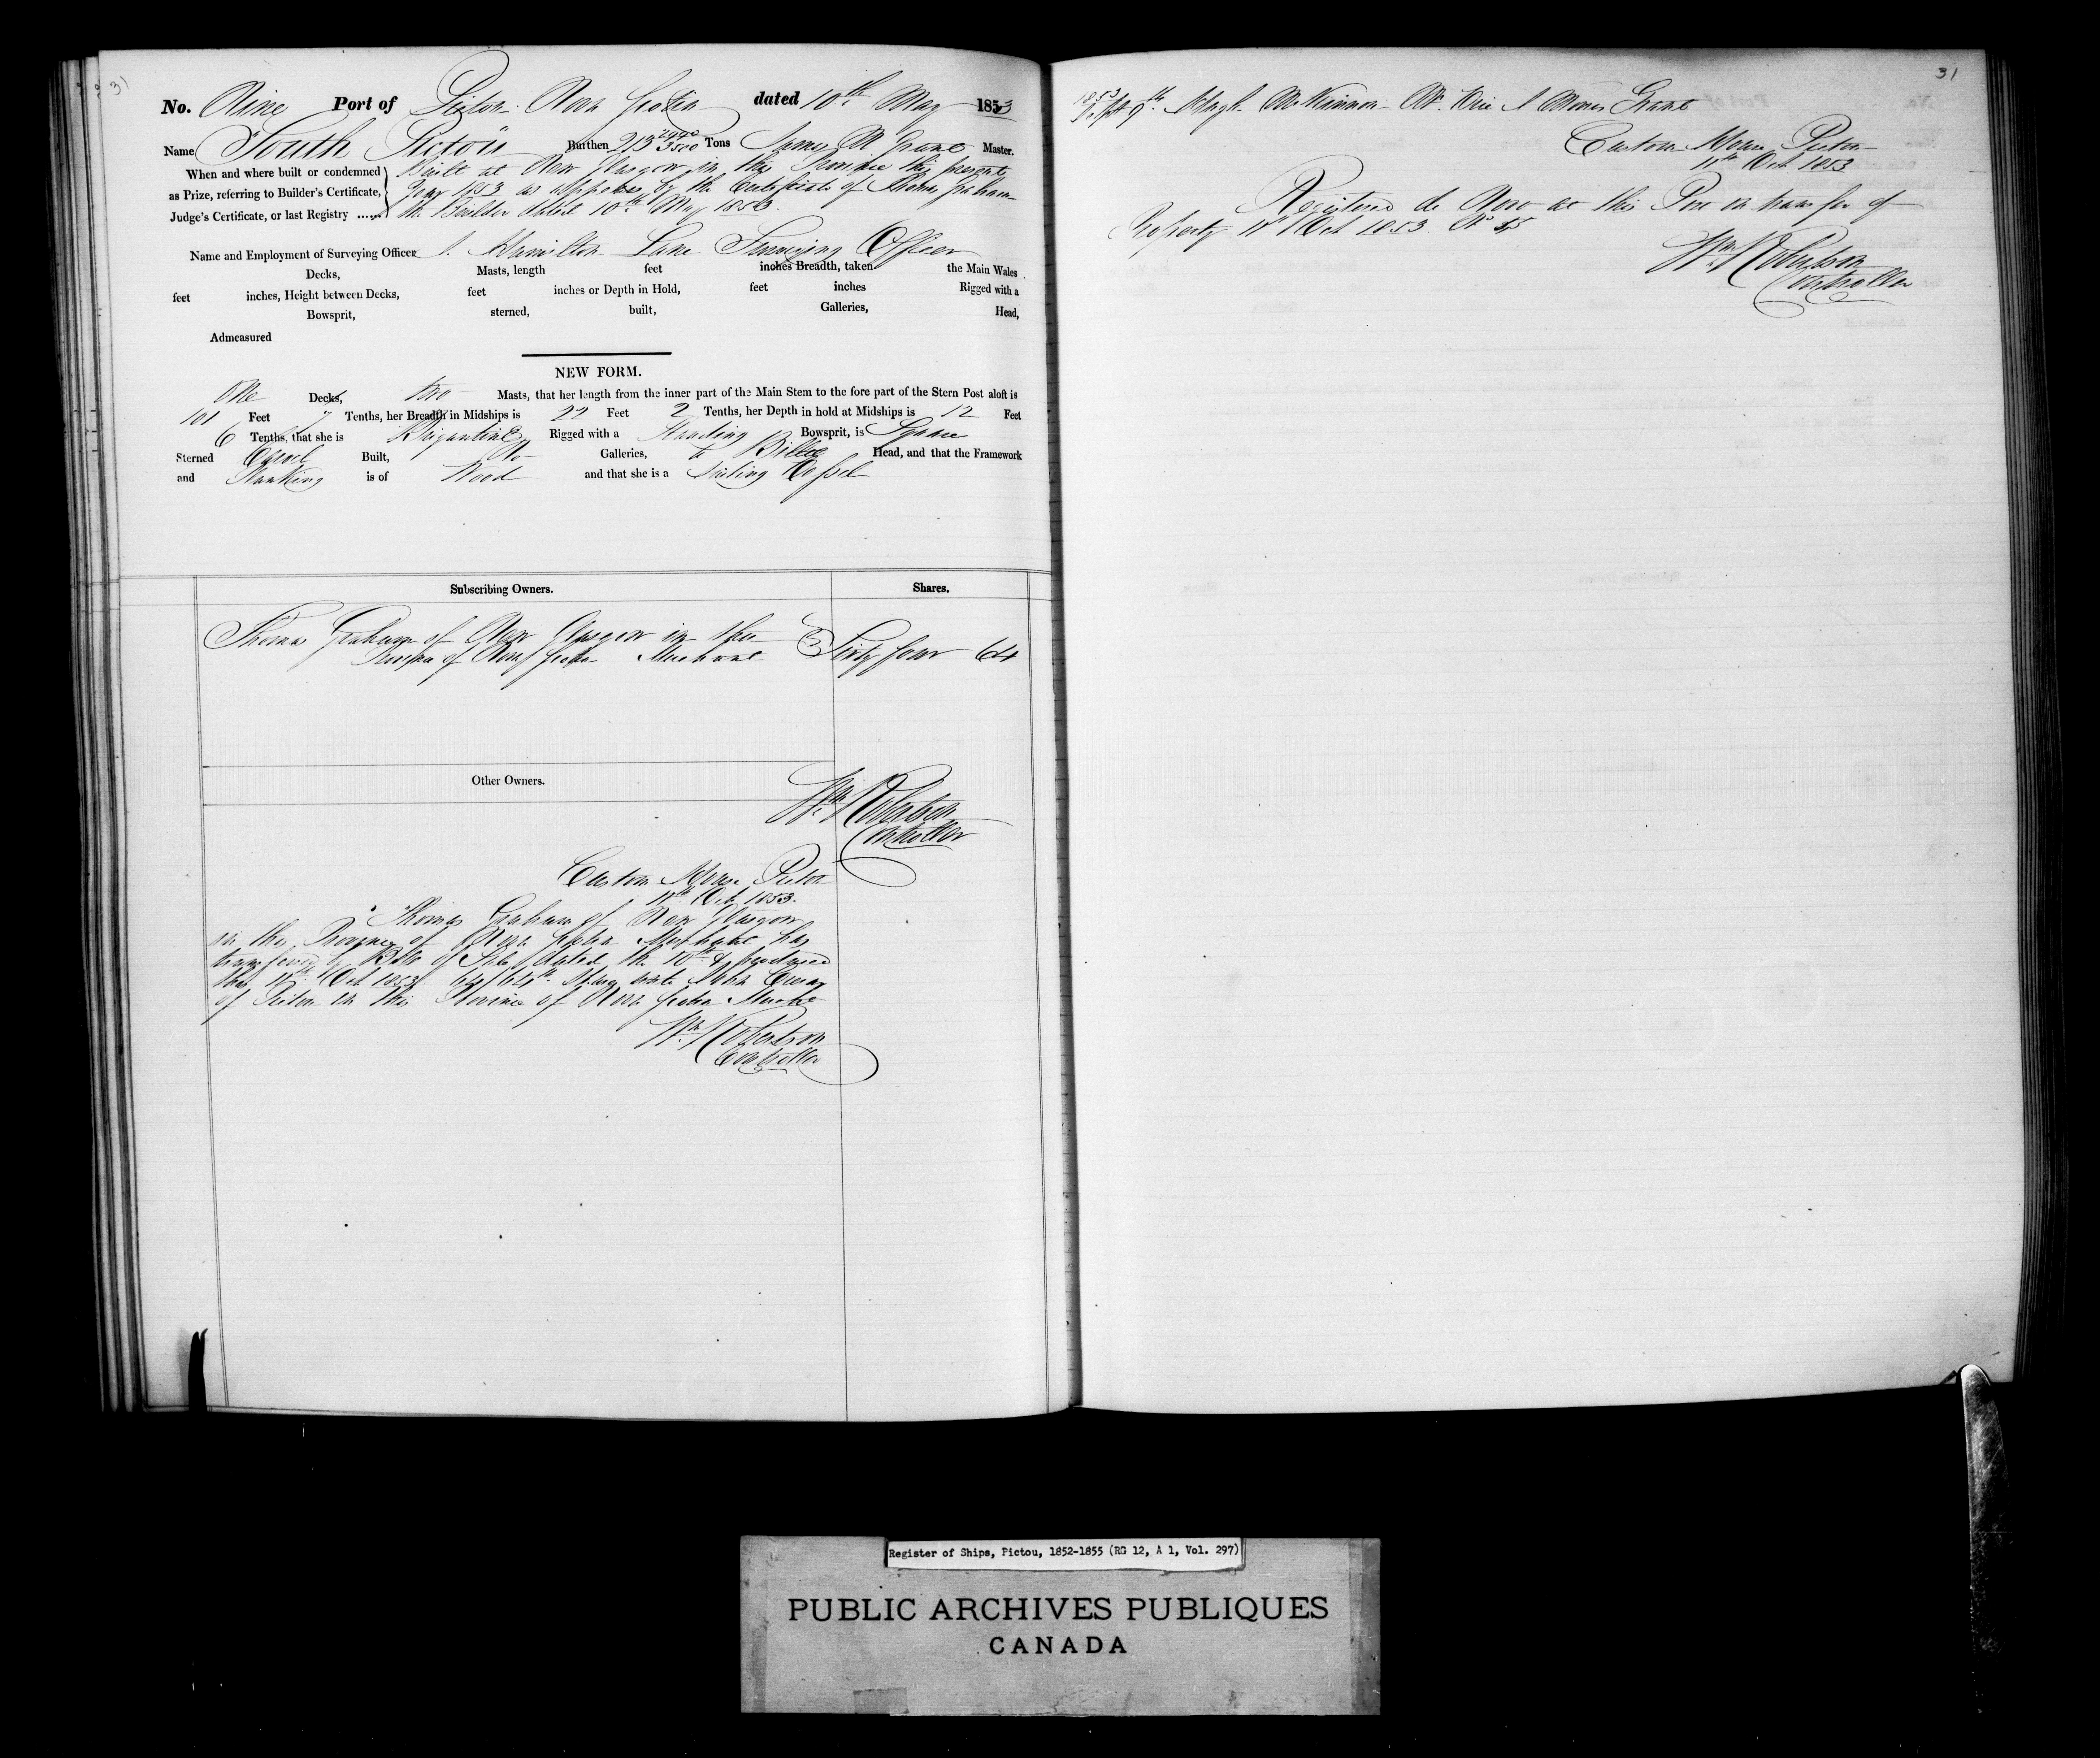 31
No. Nine Port of Pictou Nova Scotia dated 10th May 1853
Name "South Pictou" Burthen 213 2440/3500 Tons James M Grant Master.
When and where built or condemned as Prize, referring to Builder's Certificate, Judge's Certificate, or last Registry ......
Built at New Glasgow in this Province the present
Year 1853 as appears by the Certificate of Thomas Graham
the Builder dated 10th May 1853.
Name and Employment of Surveying Officer J. Hamilton Lane Surveying Officer
Decks, Masts, length feet inches Breadth, taken the Main Wales
feet inches, Height between Decks, feet inches or Depth in Hold, feet inches Rigged with a
Bowsprit, sterned, built, Galleries, Head,
Admeasured
NEW FORM.
One Decks, two Masts, that her length from the inner part of the Main Stem to the fore part of the Stern Post aloft is
101 Feet 7 Tenths, her Breadth in Midships is 22 Feet 2 Tenths, her Depth in hold at Midships is 12 Feet
6 Tenths, that she is Brigantine Rigged with a Standing Bowsprit, is Square
Sterned Carvel Built, No Galleries, & Billet Head, and that the Framework
and Planking is of Wood and that she is a Sailing Vessel
Subscribing Owners. Shares.
Thomas Graham of New Glasgow in the
Province of Nova Scotia Merchant Sixty four 64
Other Owners.
Wm Robertson
Controller
Custom House Pictou
11th Oct 1853.
Thomas Graham of New Glasgow
in the Province of Nova Scotia Merchant has
transferred by Bill of Sale dated the 10th & produced
the 11th Oct 1853 64/64th Shares unto
of Pictou in the Province of Nova Scotia
Wm Robertson
Controller
31
1853
Sept 9th Hugh McKinnon Mr. vice J Grant
Custom House Pictou
11th Oct 1853
Registered de Novo at this Port on transfer of
Property 11th Oct 1853 No 55
Wm Robertson
Controller
Register of Ships, Pictou, 1852-1855 (RG 12, A 1, Vol. 297)
PUBLIC ARCHIVES PUBLIQUES
CANADA